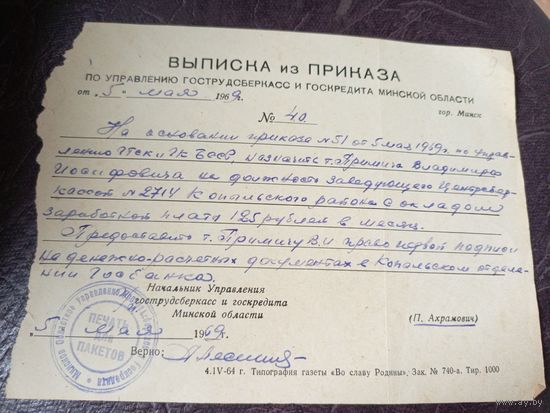 ВЫПИСКА из ПРИКАЗА
ПО УПРАВЛЕНИЮ ГОСТРУДСБЕРКАСС И ГОСКРЕДИТА МИНСКОЙ ОБЛАСТИ
от „5" мая 1969г.
гор. Минск
№ 40
На основании приказа №51 от 5 мая 1969г. по Управ-
лению ГТСК и ГК БССР, назначить т. Примича Владимира
Иосифовича на должность заведующего Центросбер-
кассой №2714 Копыльского района с окладом
заработной платы 125 рублей в месяц.
Предоставить т. Примичу В.И право первой подписи
на денежно-расчетных документах в Копыльском отделе-
нии Госбанка.
Начальник Управления
гострудсберкасс и госкредита
Минской области
(П. Ахрамович)
„5" мая 1969г.
ПЕЧАТЬ
ДЛЯ
ПАКЕТОВ
Верно:
4.IV-64 г. Типография газеты «Во славу Родины», Зак. № 740-а. Тир. 1000
ay.by